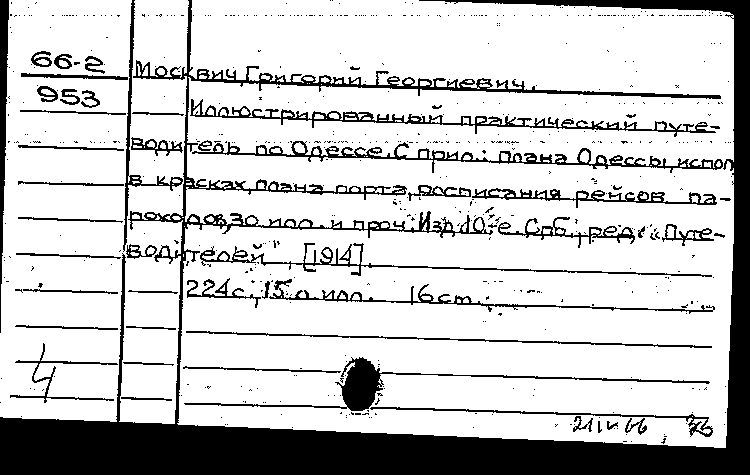 66-2
953
Москвич, Григорий Георгиевич.
Иллюстрированный практический путе-
водитель по Одессе. С прил.: плана Одессы, испол
в красках, плана порта, росписания рейсов па-
роходов, 30 илл. и проч. Изд. 10-е. Спб., ред. "Путе-
водителей", [1914].
224 с., 15 л. илл. 16 см.
4
21 IV 66